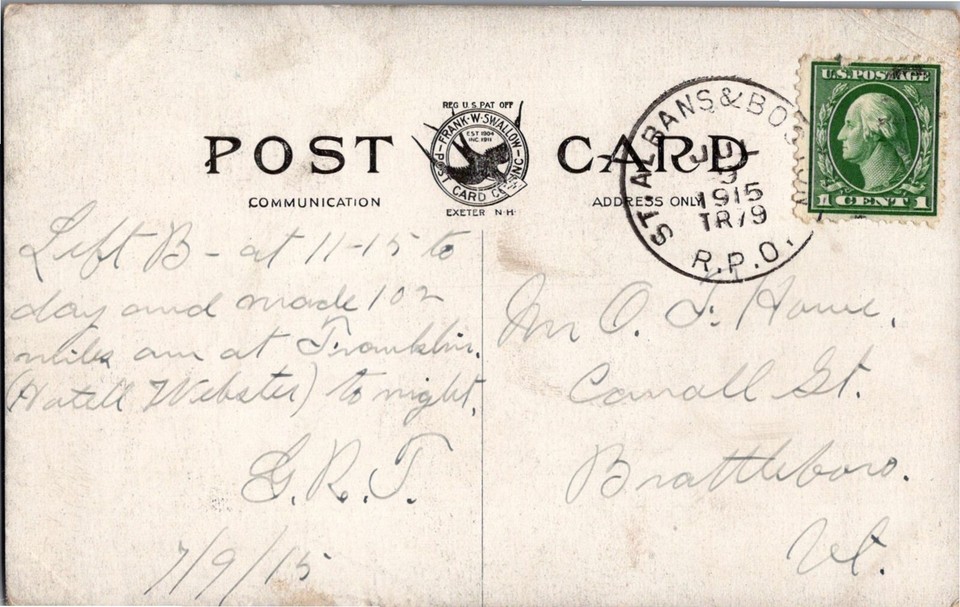 REG U.S PAT OFF
FRANK·W·SWALLOW
EST 1904
INC 1911
POST CARD CO INC
EXETER N·H·
POST CARD
COMMUNICATION
ADDRESS ONLY
ST. ALBANS & BOSTON
JUL
9
1915
TR 79
R.P.O.
U.S. POSTAGE
1 CENT 1
Left B - at 11-15 to
day and made 102
miles am at Franklin.
(Hotell Webster) to night.
G.R.T.
7/9/15
Mr O. F. Howe.
Canall St.
Brattleboro.
Vt.